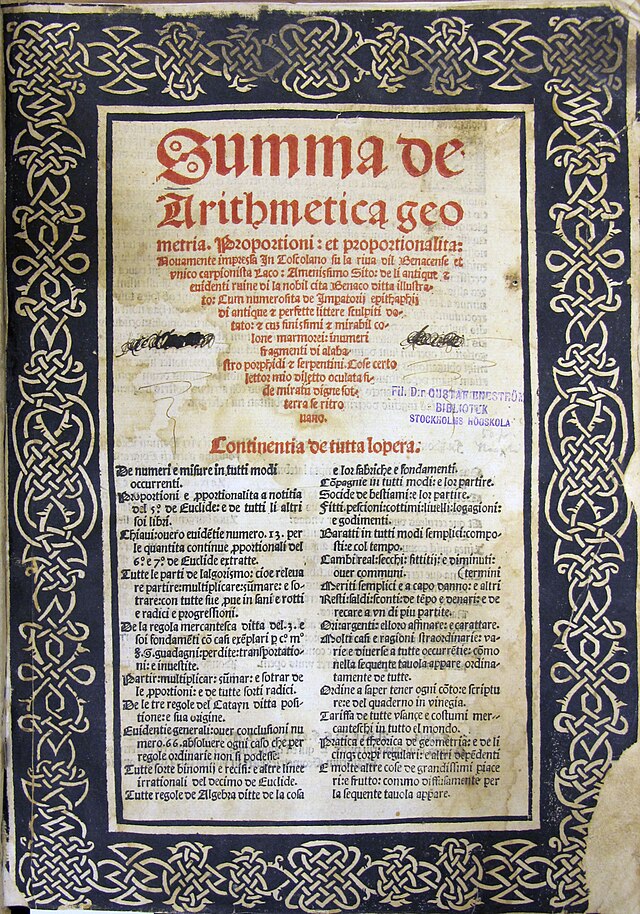 Summa de
Arithmetica geo
metria. Proportioni: et proportionalita:
Novamente impressa In Toscolano su la riva dil Benacense et
unico carpionista Laco: Amenissimo Sito: de li antique &
evidenti ruine di la nobil cita Benaco ditta illustra-
to: Cum numerosita de Impatorij epithaphij
di antique & perfette littere sculpiti do-
tato: & cus finissimi & mirabil co-
lone marmorei: inumeri
fragmenti di alaba
stro porphidi & serpentini. Cose certo
lettor mio diletto oculata fi-
de miratu digne sot-
terra se ritro
vano.
Fil. D:r GUSTAF ENESTRÖM
BIBLIOTEK
STOCKHOLMS HÖGSKOLA
Continentia de tutta lopera.
De numeri e misure in tutti modi
occurrenti.
Proportioni e ꝓportionalita a notitia
del 5º de Euclide: e de tutti li altri
soi libri.
Chiavi: overo evidētie numero. 13. per
le quantita continue ꝓportionali del
6º e 7º de Euclide extratte.
Tutte le parti de lalgorismo: cioe releva
re partire: multiplicare: sūmare: e so-
trare: con tutte sue ꝓve in sani e rotti
e radici e progressioni.
De la regola mercantesca ditta del. 3. e
soi fondamēti cō casi exēplari ꝑ cº mº
8. G. guadagni: perdite: transportatio-
ni: e investite.
Partir: multiplicar: sūmar: e sotrar de
le ꝓportioni: e de tutte sorti radici.
De le tre regole del Catayn ditta posi-
tione: e sua origine.
Evidentie generali: over conclusioni nu
mero. 66. absolvere ogni caso che per
regole ordinarie non si podesse.
Tutte sorte binomij e recisi: e altre linee
irrationali del decimo de Euclide.
Tutte regole de Algebra ditte de la cosa
e lor fabriche e fondamenti.
Cōpagnie in tutti modi: e lor partire.
Socide de bestiami: e lor partire.
Fitti: pescioni: cottimi: livelli: logagioni:
e godimenti.
Baratti in tutti modi semplici: compo-
sti: e col tempo.
Cambi reali: secchi: fittitij: e diminuti:
over communi. (termini
Meriti semplici e a capo danno: e altri
Resti: saldi: sconti: de tēpo e denari: e de
recare a un di piu partite.
Ori: argenti: e lloro affinare: e carattare.
Molti casi e ragioni straordinarie: va-
rie e diverse a tutte occurrētie: cōmo
nella sequente tavola appare ordina-
tamente de tutte.
Ordine a saper tener ogni cōto: e scriptu
re: e del quaderno in vinegia.
Tariffa de tutte usance e costumi mer-
canteschi in tutto el mondo.
Pratica e theorica de geometria: e de li
cinqꝫ corpi regulari: e altri depēdenti
E molte altre cose de grandissimi piace
ri: e frutto: commo diffusamente per
la sequente tavola appare.